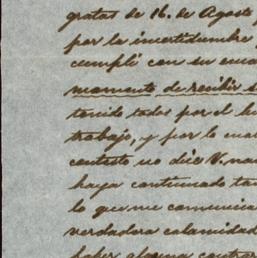 gratas de 16. de Agosto
por la incertidumbre
cumplí con su enca
momento de recibir s
tenido todos por el
trabajo, y por lo cual
contesto no dice V. na
haya continuado ta
lo que me comunica
verdadera calamidad
haber alguna contra